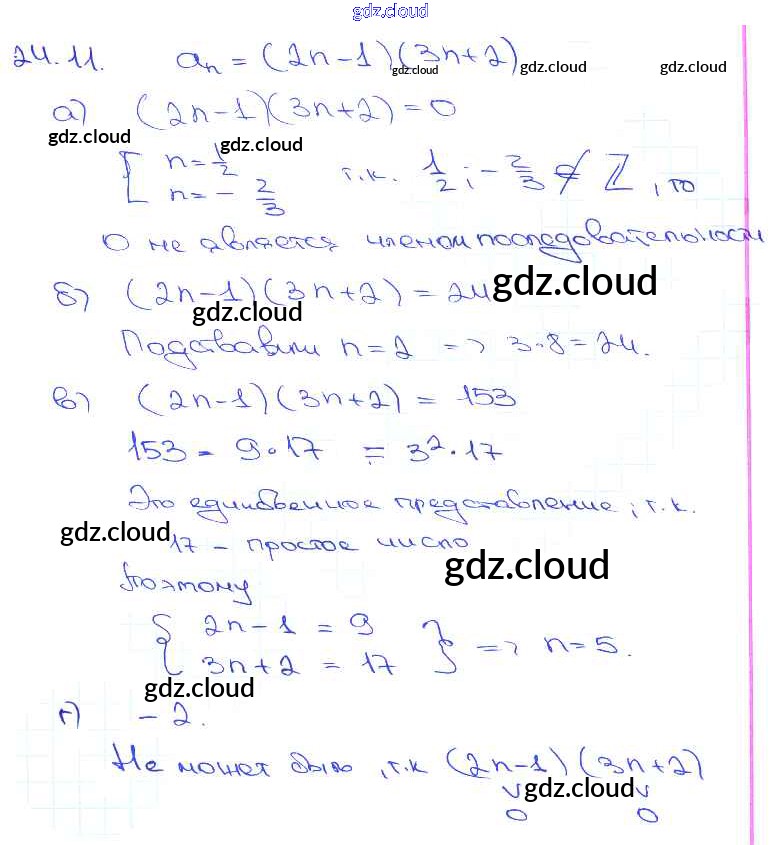 gdz.cloud
24.11. aₙ = (2n-1)(3n+2)
gdz.cloud gdz.cloud gdz.cloud
а) (2n-1)(3n+2)=0
gdz.cloud gdz.cloud
[ n=1/2
n= - 2/3 т.к. 1/2; -2/3 ∉ Z, то
0 не является членом последовательности
gdz.cloud
б) (2n-1)(3n+2) = 24
gdz.cloud
Подставим n=2 => 3·8=24.
в) (2n-1)(3n+2) = 153
153 = 9·17 = 3²·17
Это единственное представление, т.к.
gdz.cloud
17 - простое число
gdz.cloud
Поэтому
{ 2n-1 = 9
3n+2 = 17 } => n=5.
gdz.cloud
г) -2.
Не может быть, т.к (2n-1)(3n+2)
gdz.cloud
∨ ∨
0 0